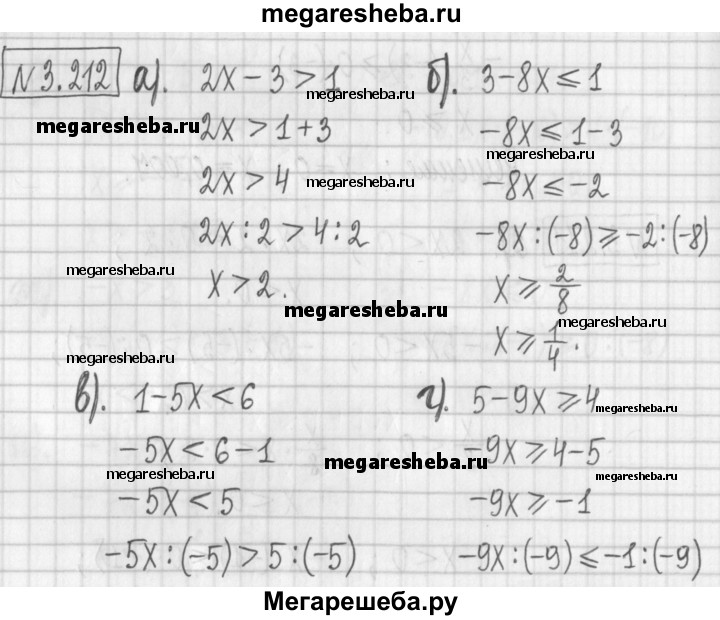 megaresheba.ru
№3.212 а). 2x − 3 > 1 б). 3 − 8x ⩽ 1
megaresheba.ru megaresheba.ru
megaresheba.ru 2x > 1 + 3 −8x ⩽ 1 − 3
megaresheba.ru
2x > 4 megaresheba.ru −8x ⩽ −2
2x : 2 > 4 : 2 −8x : (−8) ⩾ −2 : (−8)
megaresheba.ru x > 2. x ⩾ 2/8
megaresheba.ru
megaresheba.ru
x ⩾ 1/4.
megaresheba.ru
в). 1 − 5x < 6 г). 5 − 9x ⩾ 4
megaresheba.ru
−5x < 6 − 1 −9x ⩾ 4 − 5
megaresheba.ru megaresheba.ru
megaresheba.ru megaresheba.ru
−5x < 5 −9x ⩾ −1
−5x : (−5) > 5 : (−5) −9x : (−9) ⩽ −1 : (−9)
Мегарешеба.ру